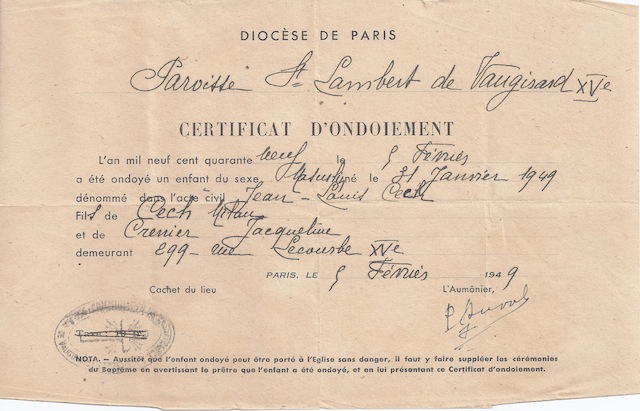 DIOCÈSE DE PARIS
Paroisse St Lambert de Vaugirard XVe
CERTIFICAT D'ONDOIEMENT
L'an mil neuf cent quarante neuf le 5 Février
a été ondoyé un enfant du sexe Masculin né le 31 Janvier 1949
dénommé dans l'acte civil Jean-Louis Cech
Fils de Cech Milan
et de Crenier Jacqueline
demeurant 299 rue Lecourbe XVe
PARIS, LE 5 Février 1949
Cachet du lieu L'Aumônier,
NOTA. — Aussitôt que l'enfant ondoyé peut être porté à l'Eglise sans danger, il faut y faire suppléer les cérémonies
du Baptême en avertissant le prêtre que l'enfant a été ondoyé, et en lui présentant ce Certificat d'ondoiement.